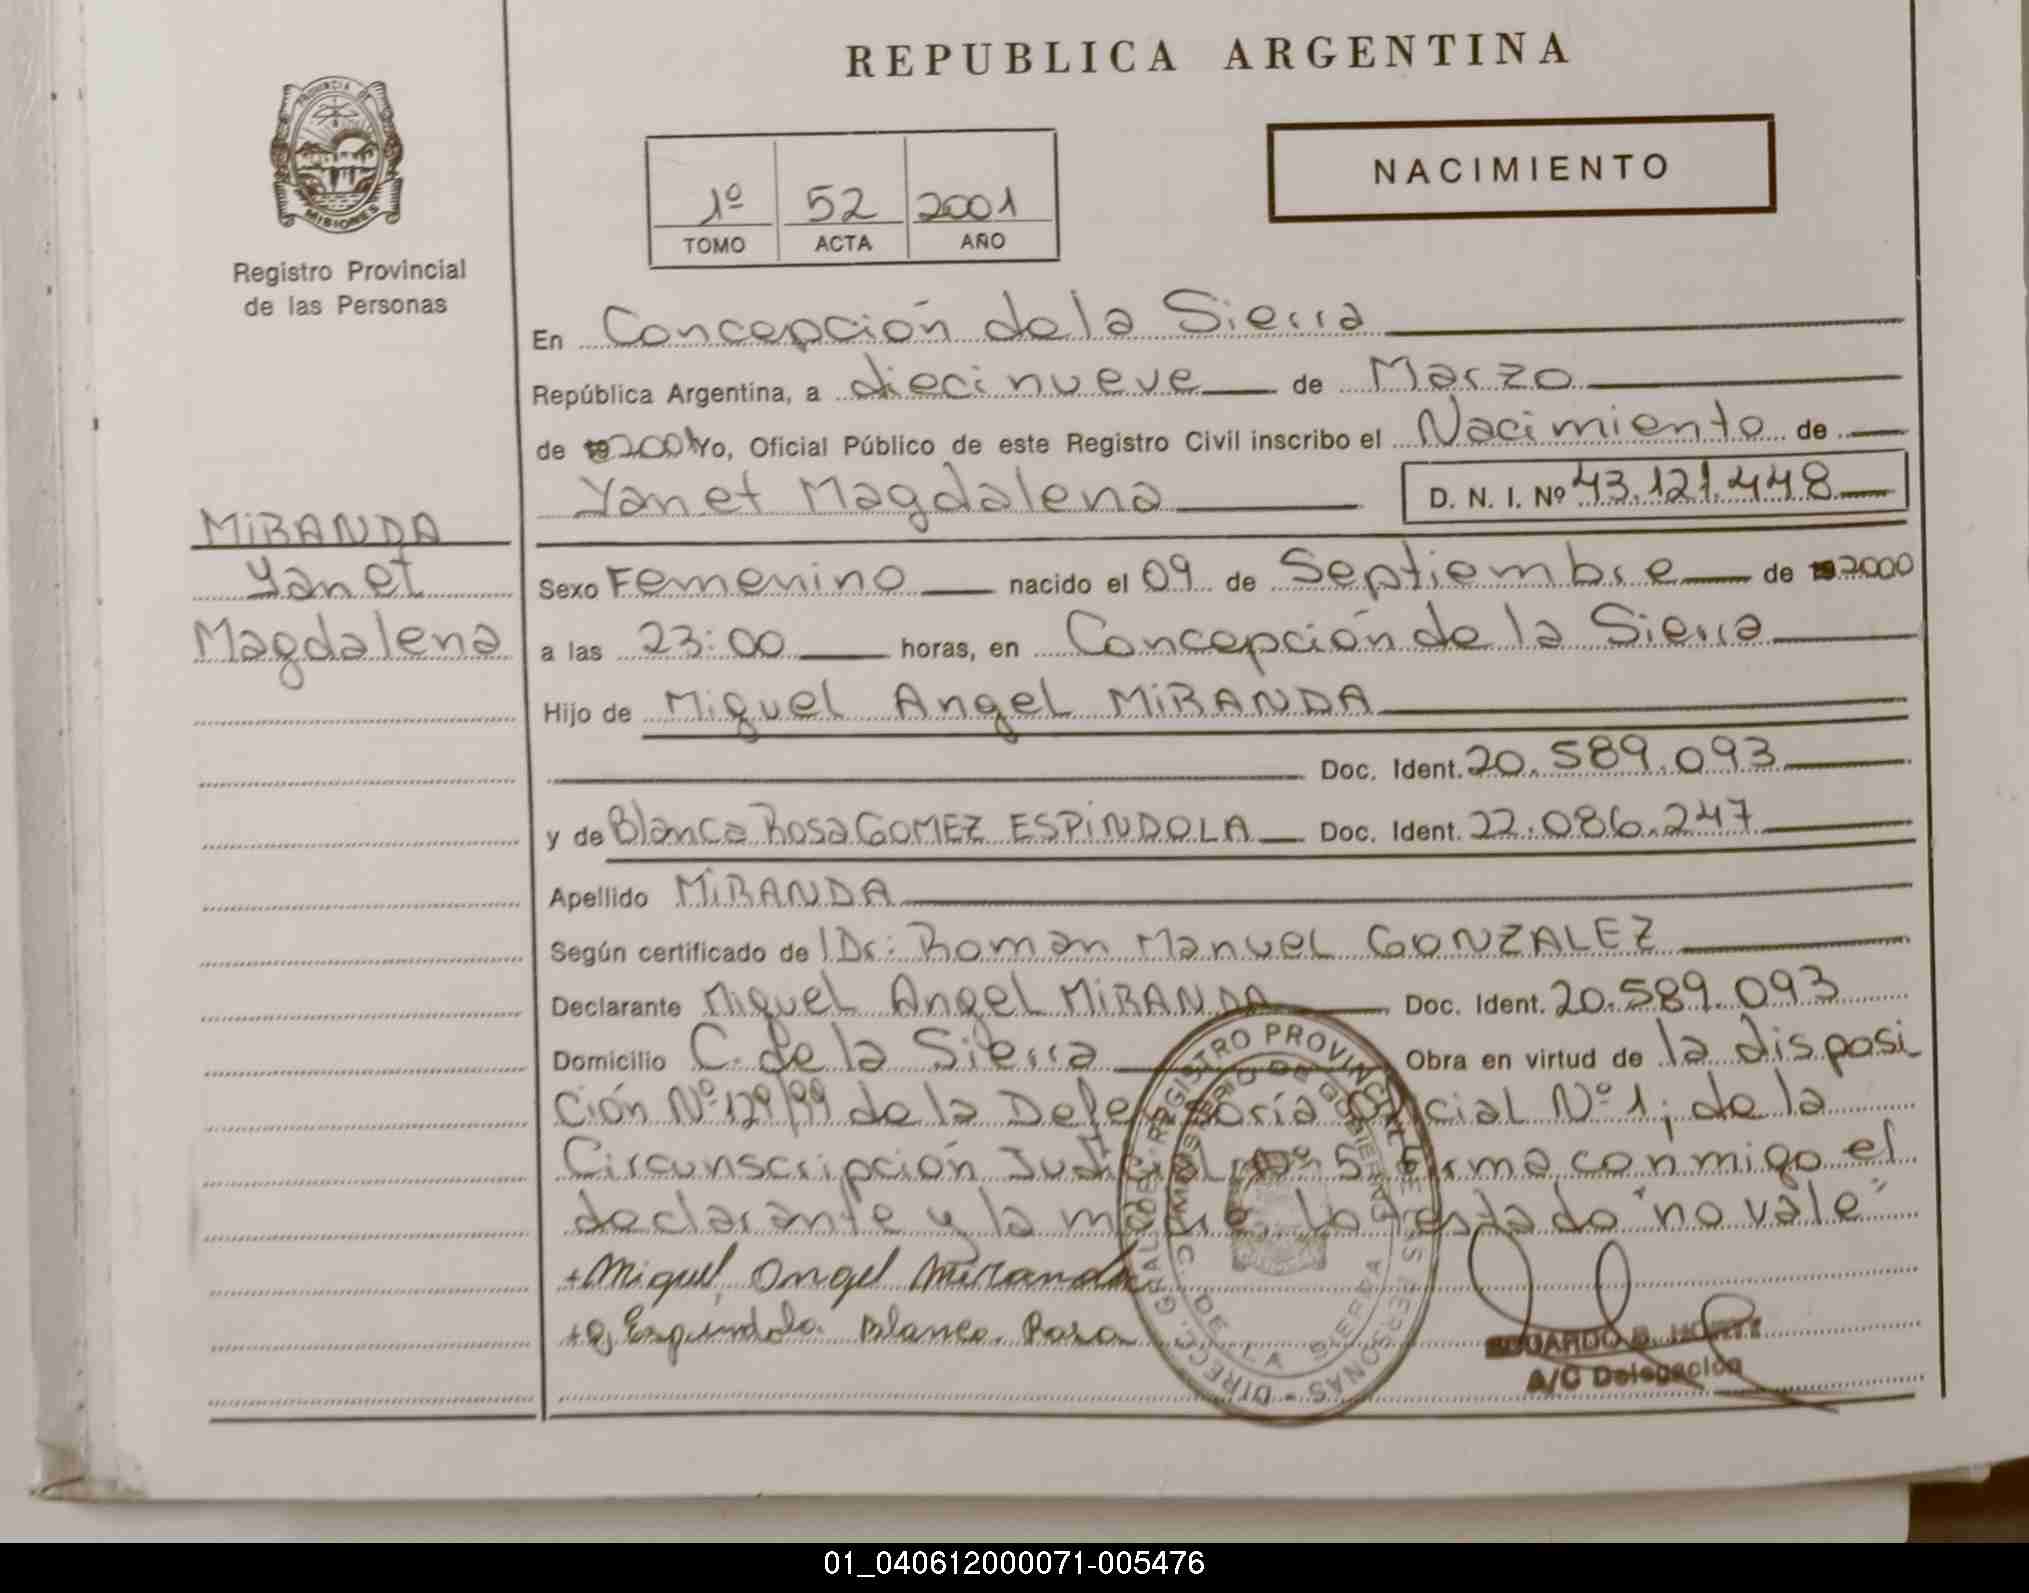 REPUBLICA ARGENTINA
PROVINCIA DE
MISIONES
Registro Provincial
de las Personas
1º 52 2001
TOMO ACTA AÑO
NACIMIENTO
En Concepción de la Sierra
República Argentina, a diecinueve de Marzo
de 19 2001 Yo, Oficial Público de este Registro Civil inscribo el Nacimiento de
Yanet Magdalena D. N. I. Nº 43.121.448
MIRANDA
Yanet
Magdalena
Sexo Femenino nacido el 09 de Septiembre de 19 2000
a las 23:00 horas, en Concepción de la Sierra
Hijo de Miguel Angel MIRANDA
Doc. Ident. 20.589.093
y de Blanca Rosa GOMEZ ESPINDOLA Doc. Ident. 22.086.247
Apellido MIRANDA
Según certificado de Dr: Roman Manuel GONZALEZ
Declarante Miguel Angel MIRANDA Doc. Ident. 20.589.093
Domicilio C. de la Sierra Obra en virtud de la disposi
ción Nº 129/99 de la Defensoría Oficial Nº 1; de la
Circunscripción Judicial Nº 5 firma conmigo el
declarante y la madre. Lo testado "no vale"
+ Miguel Angel Miranda
+ G, Espindola Blanca Rosa
DIRECC. GRAL. DEL REGISTRO PROVINCIAL DE LAS PERSONAS
MINISTERIO DE GOBIERNO
C. DE LA SIERRA
EDUARDO
A/C Delegación
01_040612000071-005476